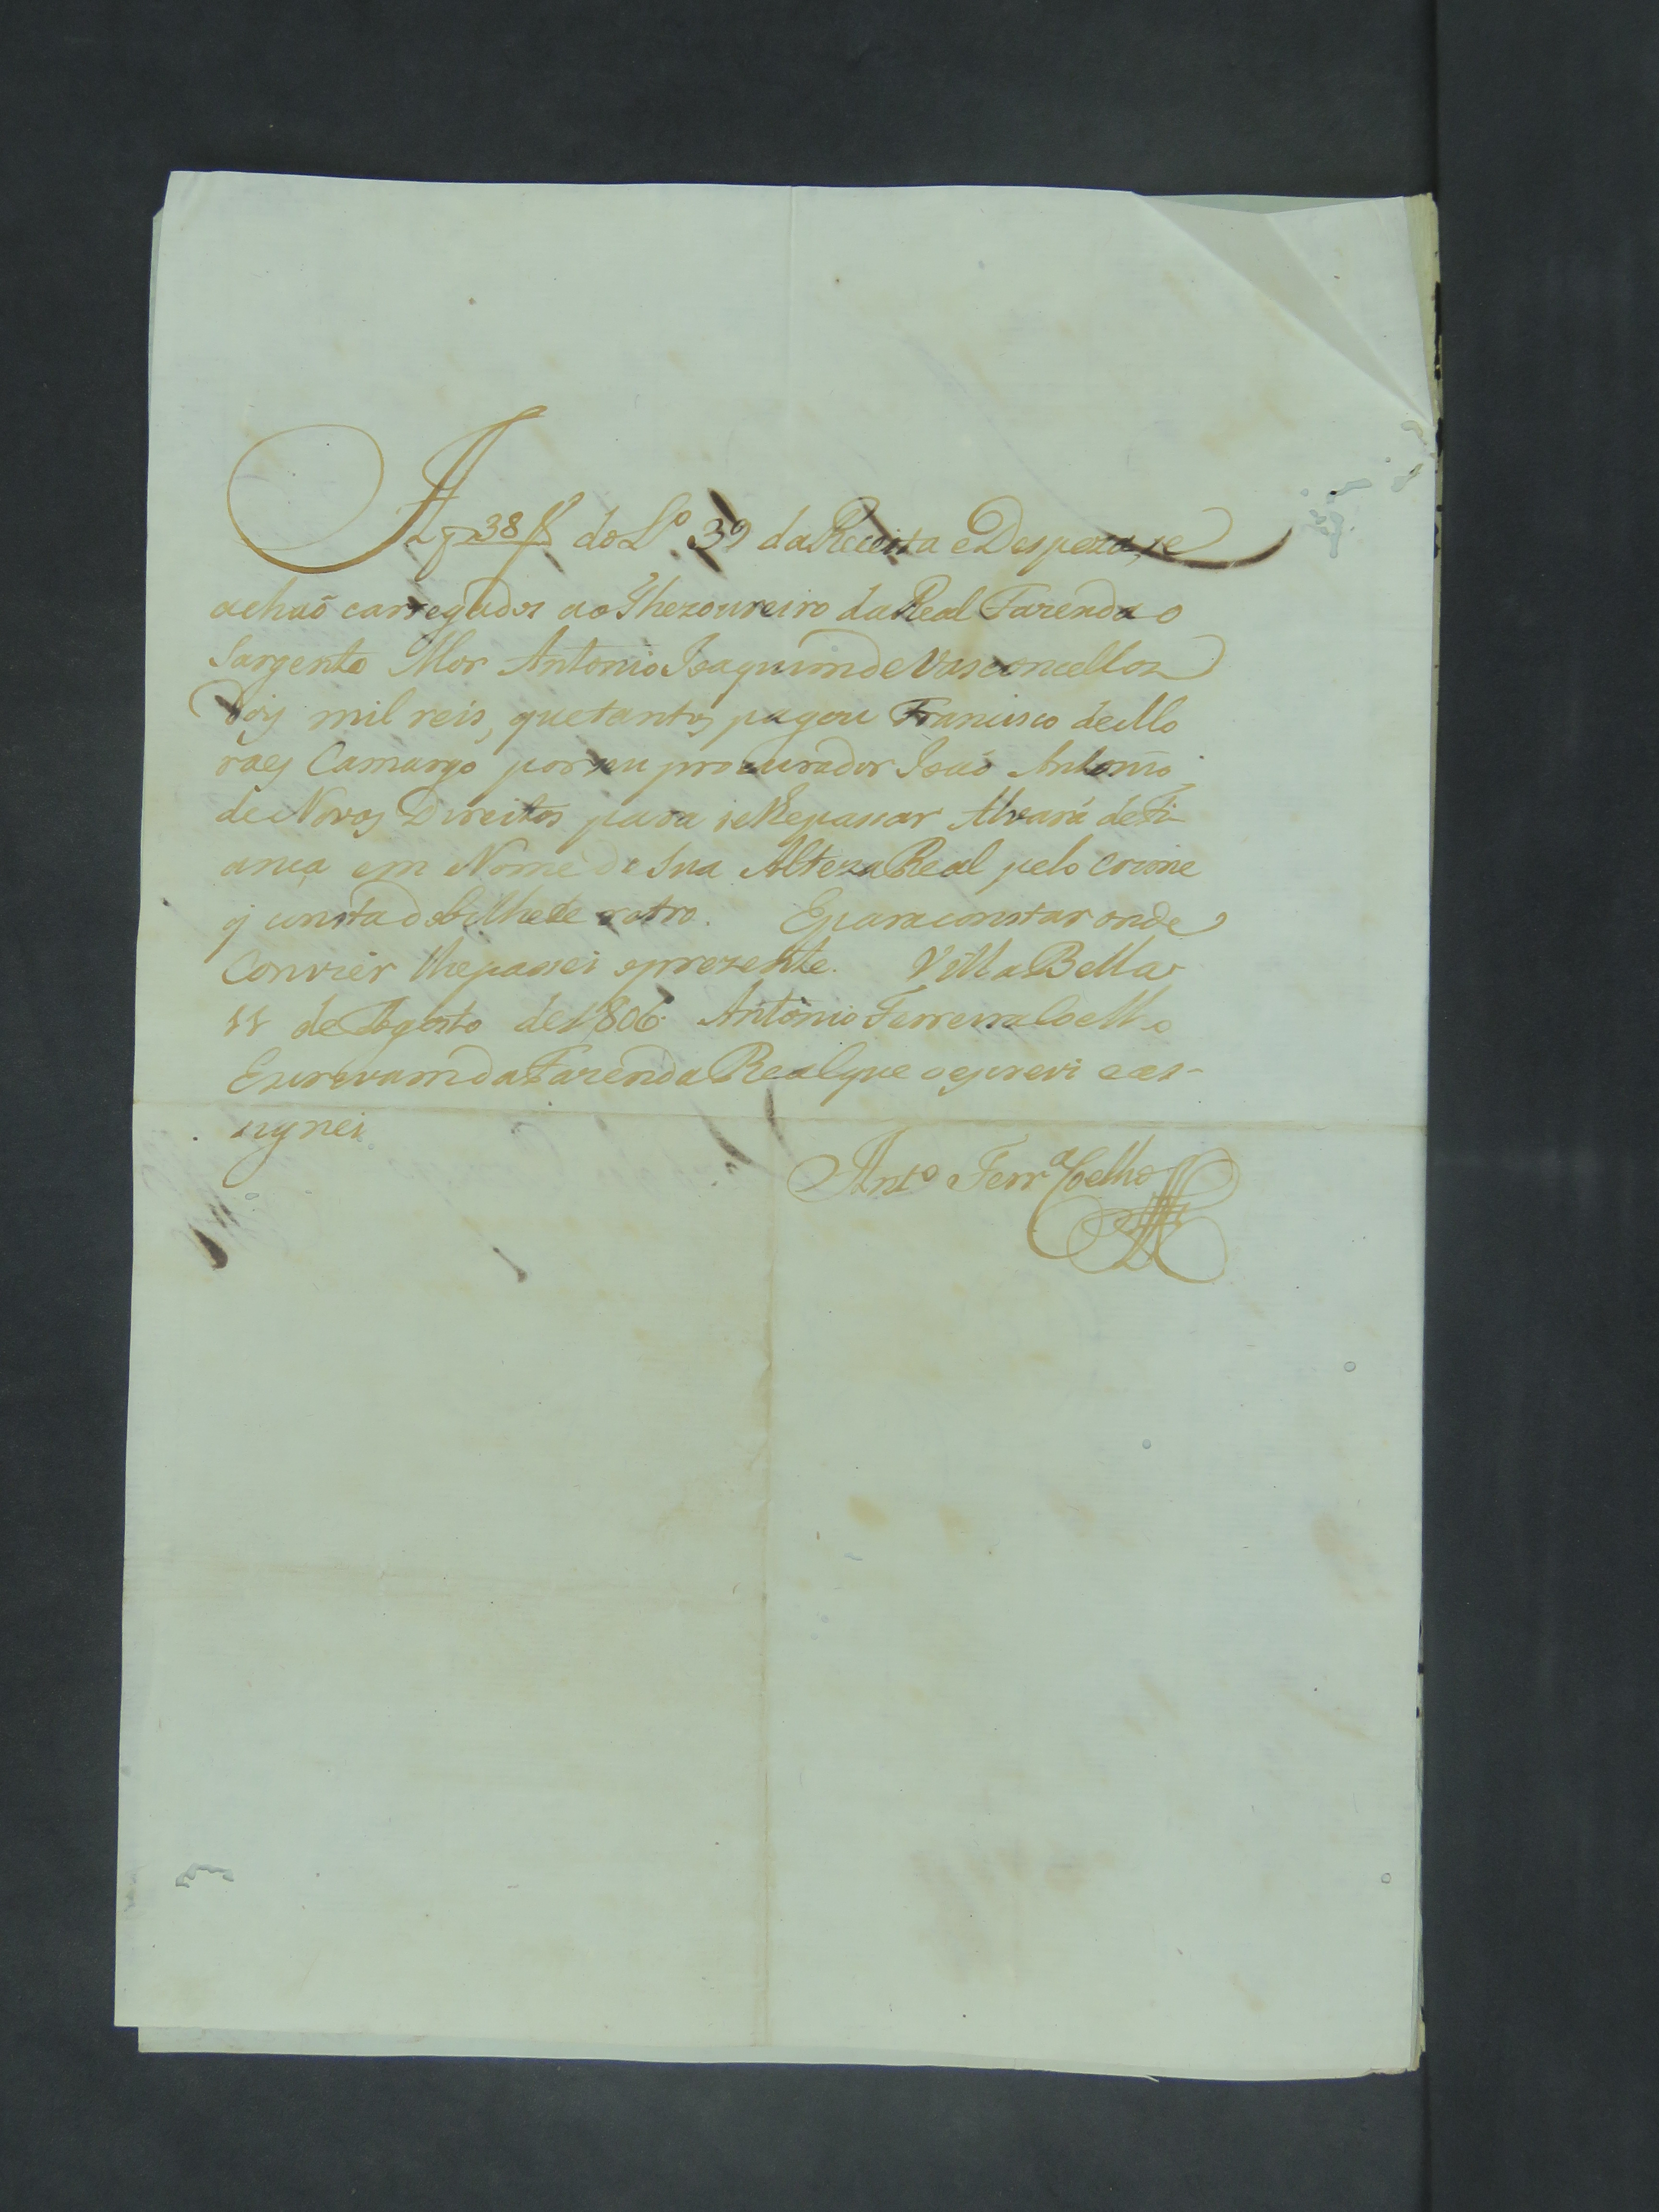 A f 38 do L.º 39 da Receita e Despeza, se
achaõ carregados ao Thezoureiro da Real Fazenda o
Sargento Mor Antonio Joaquim de Vasconcellos
Doÿs mil reis, que tantos pagou Francisco de Mo
raes Camargo por seu procurador Joaõ Antonio
de Novos Direitos para se lhe passar Alvará de Fi-
ança em Nome de Sua Alteza Real pelo crime
q consta do bilhete retro. E para constar onde
Convier lhe passei o prezente. Villa Bella
11 de Agosto de 1806. Antonio Ferreira Coelho
Escrivam da Fazenda Real que o escrevi e as-
signei
Ant.º Ferr.ª Coelho